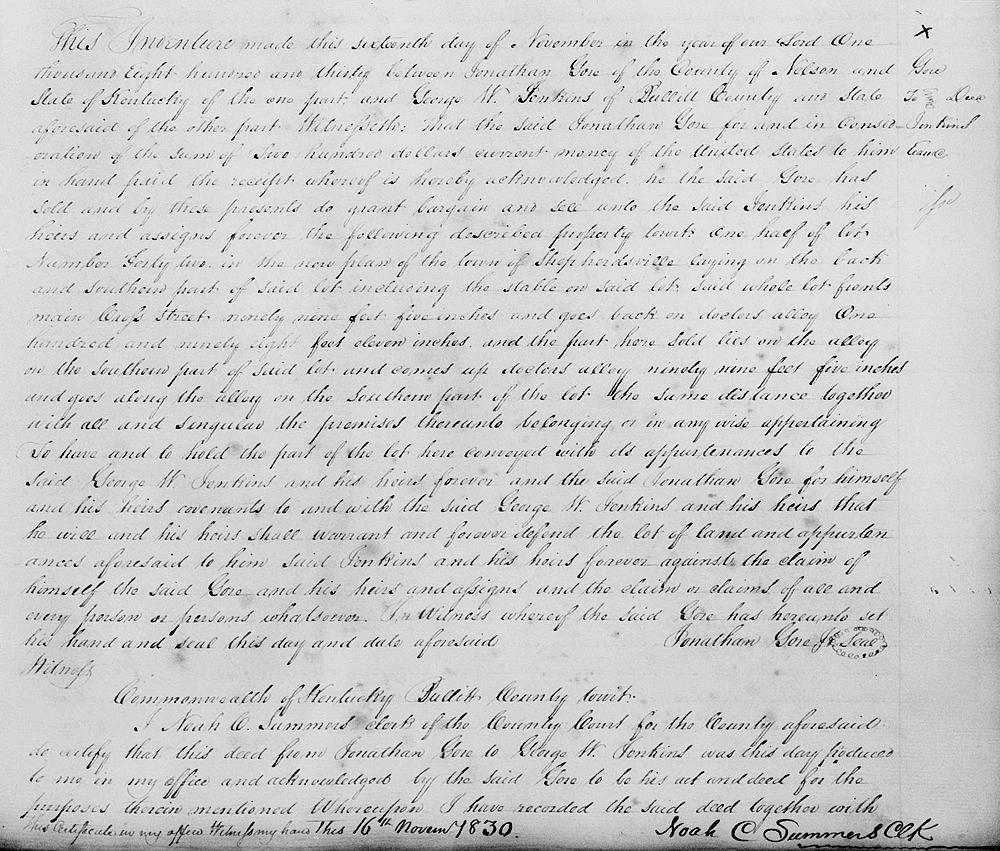 This Indenture made this sixteenth day of November in the year of our Lord One
thousand Eight hundred and thirty between Jonathan Gore of the County of Nelson and
State of Kentucky of the one part; and George W. Jenkins of Bullitt County and state
aforesaid of the other part Witnesseth: That the said Jonathan Gore for and in consid-
eration of the sum of Two hundred dollars current money of the United States to him
in hand paid the receipt whereof is hereby acknowledged. he the said Gore has
sold and by these presents do grant bargain and sell unto the said Jenkins his
heirs and assigns forever the following described property towit: One half of lot
Number Forty two. in the now plan of the town of Shepherdsville laying on the back
and southern part of said lot including the stable on said lot. said whole lot fronts
main Cross street ninety nine feet five inches and goes back on doctors alloy One
hundred and ninety eight feet eleven inches. and the part here sold lies on the alley
on the southern part of said lot and comes up doctors alley ninety nine feet five inches
and goes along the alley on the southern part of the lot the same distance together
with all and singular the premises thereunto belonging or in any wise appertaining
To have and to hold the part of the lot here conveyed with its appurtenances to the
said George W. Jenkins and his heirs forever and the said Jonathan Gore for himself
and his heirs covenants to and with the said George W. Jenkins and his heirs that
he will and his heirs shall warrant and forever defend the lot of land and appurten
ances aforesaid to him said Jenkins and his heirs forever against the claim of
himself the said Gore and his heirs and assigns and the claim or claims of all and
every person or persons whatsoever. In Witness whereof the said Gore has hereunto set
his hand and seal this day and date aforesaid Jonathan Gore Jr Seal
Witness
Commonwealth of Kentucky Bullitt County towit:
I Noah C. Summers clerk of the County Court for the County aforesaid
do certify that this deed from Jonathan Gore to George W. Jenkins was this day produced
to me in my office and acknowledged by the said Gore to be his act and deed for the
purposes therein mentioned Whereupon I have recorded the said deed together with
this certificate in my office Witness my hand this 16th Novem 1830.
Noah C Summers Clk
X
Gore
To Deed
Jenkins